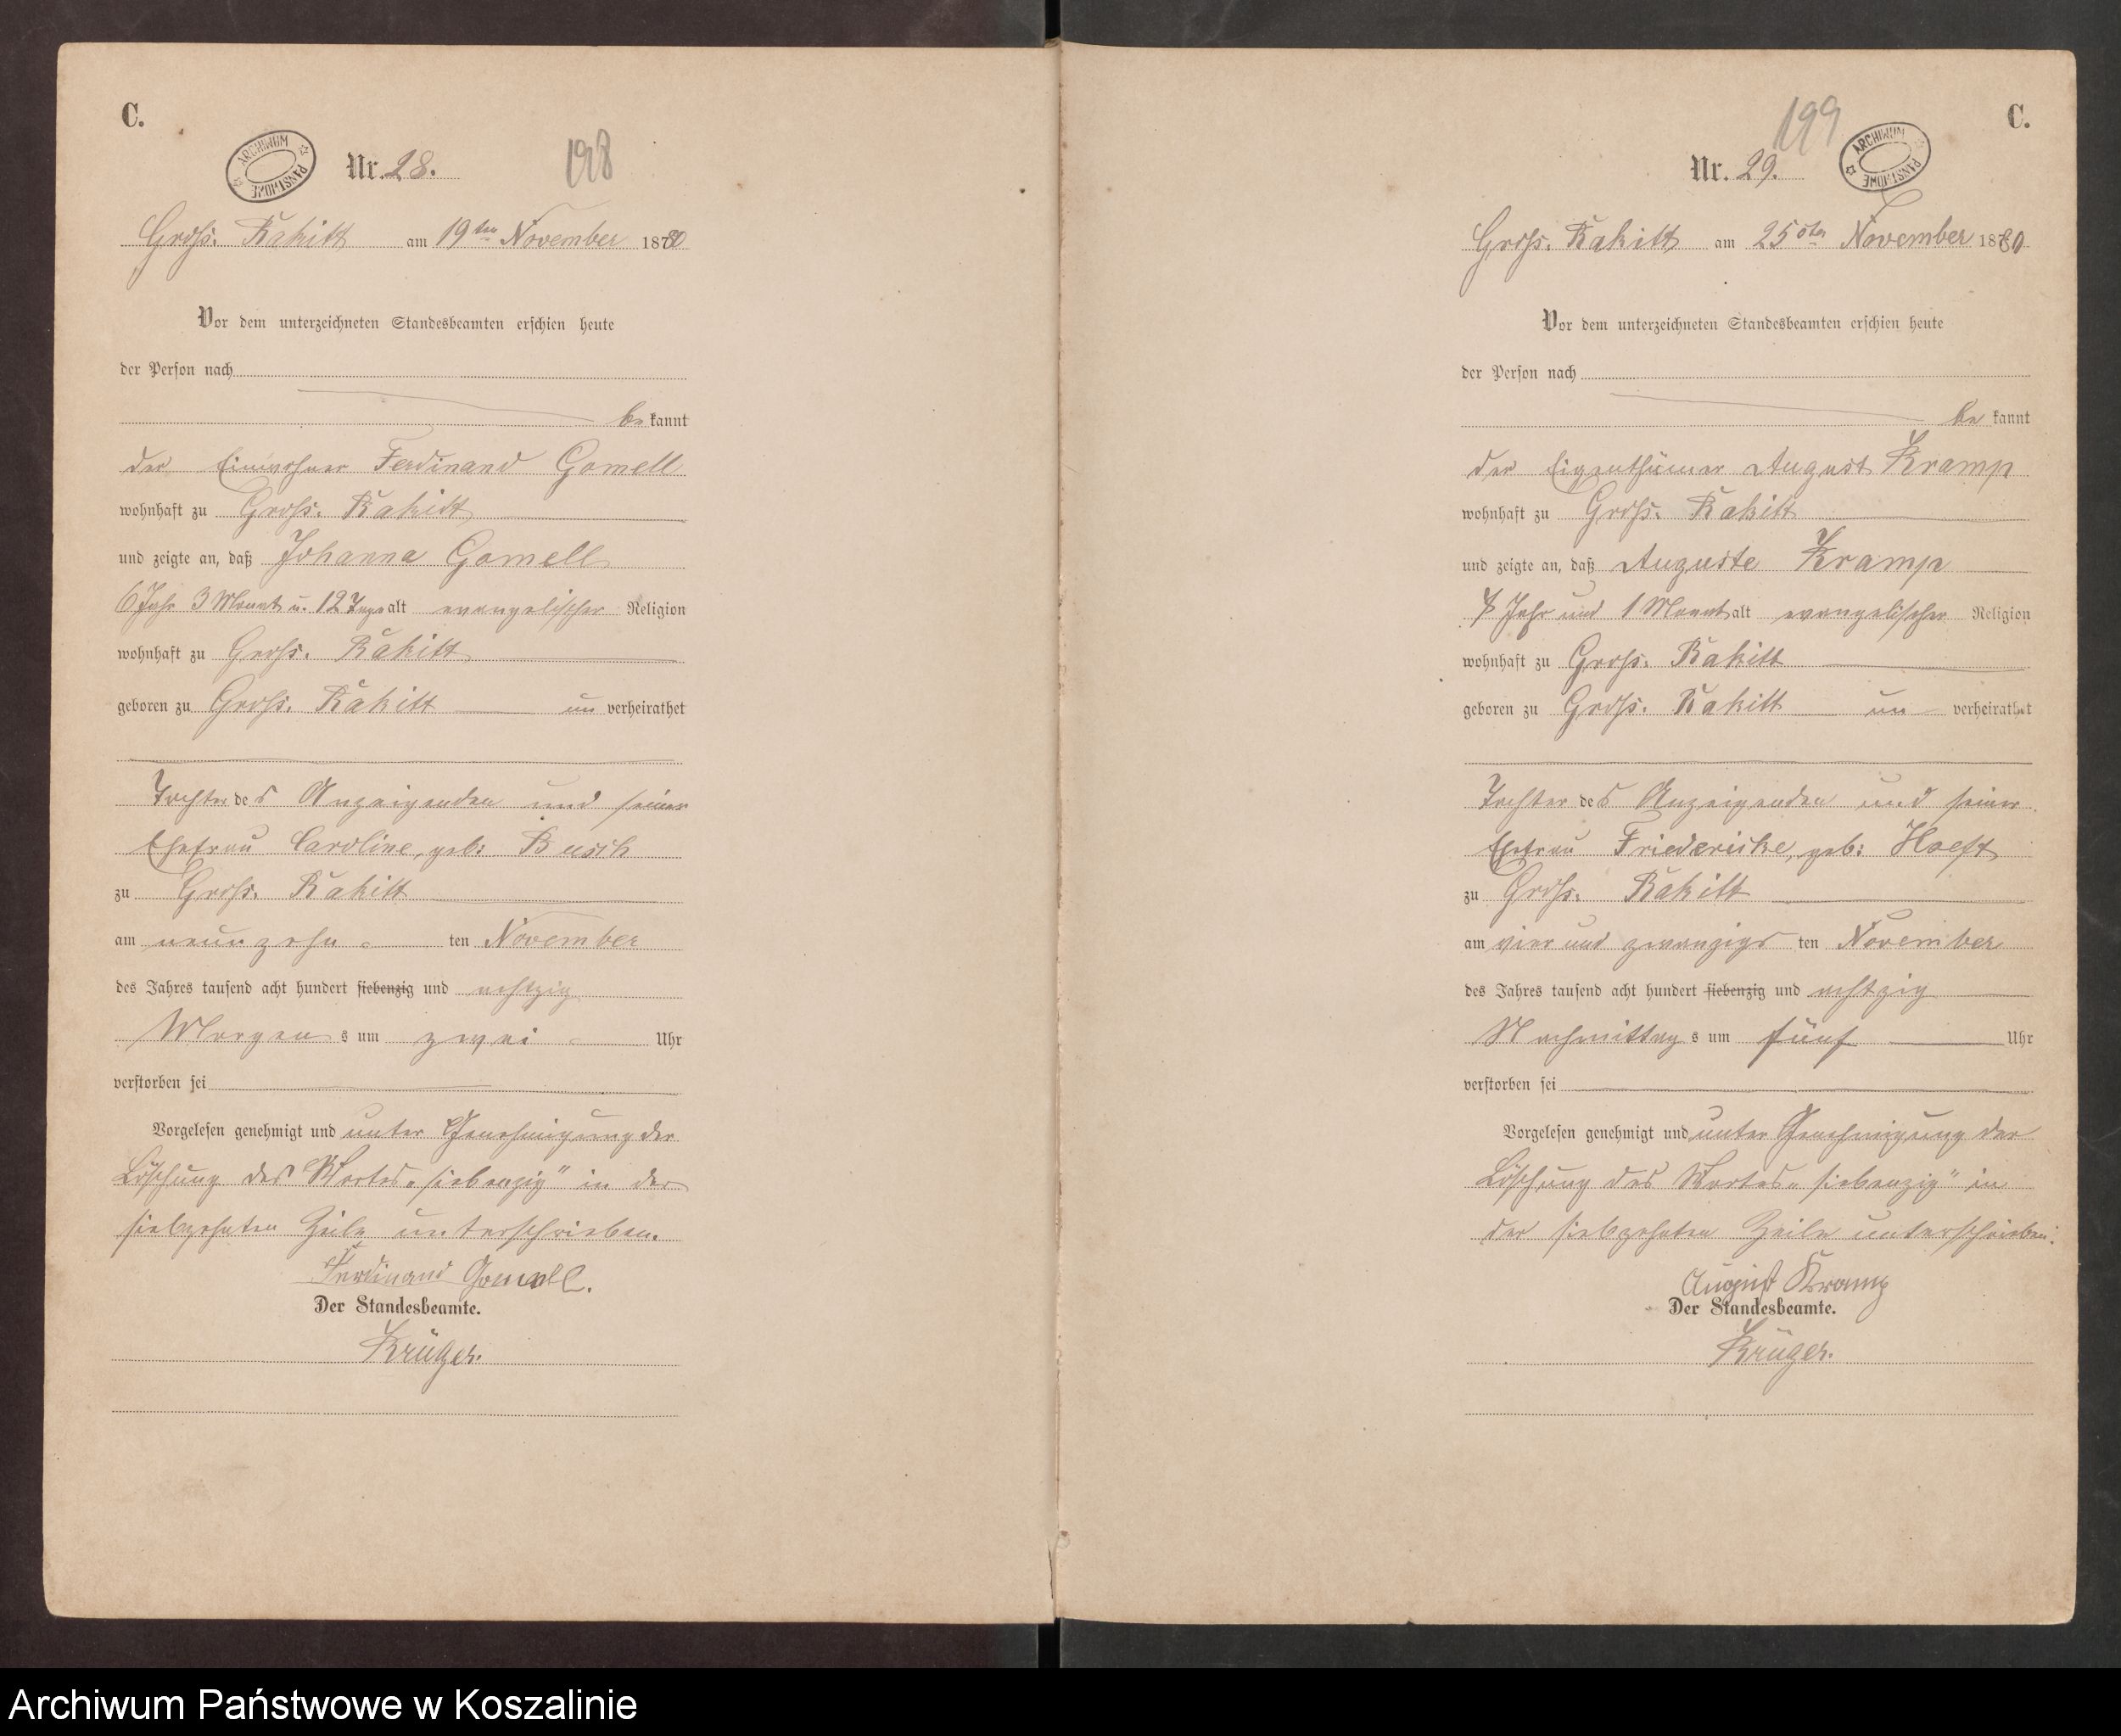 C.
ARCHIWUM PAŃSTWOWE
Nr. 28.
198
Groß. Rakitt am 19ten November 1880
Vor dem unterzeichneten Standesbeamten erschien heute
der Person nach
be kannt
der Einwohner Ferdinand Gomell
wohnhaft zu Groß. Rakitt
und zeigte an, daß Johanna Gomell
6 Jahr 3 Monat u. 12 Tage alt evangelischer Religion
wohnhaft zu Groß. Rakitt
geboren zu Groß. Rakitt un verheirathet
Tochter des Anzeigenden und seiner
Ehefrau Caroline, geb: Busch
zu Groß. Rakitt
am neunzehn ten November
des Jahres tausend acht hundert siebenzig und achtzig
Morgens um zwei Uhr
verstorben sei
Vorgelesen genehmigt und unter Genehmigung der
Löschung des Wortes „siebenzig" in der
siebzehnten Zeile unterschrieben.
Ferdinand Gomell.
Der Standesbeamte.
Krüger.
C.
199
ARCHIWUM PAŃSTWOWE
Nr. 29.
Groß. Rakitt am 25sten November 1880
Vor dem unterzeichneten Standesbeamten erschien heute
der Person nach
be kannt
der Eigenthümer August Kramp
wohnhaft zu Groß. Rakitt
und zeigte an, daß Auguste Kramp
Jahr und 1 Monat alt evangelischer Religion
wohnhaft zu Groß. Rakitt
geboren zu Groß. Rakitt un verheirathet
Tochter des Anzeigenden und seiner
Ehefrau Friedericke, geb: Hoeft
zu Groß. Rakitt
am vier und zwanzigs ten November
des Jahres tausend acht hundert siebenzig und achtzig
Nachmittags um fünf Uhr
verstorben sei
Vorgelesen genehmigt und unter Genehmigung der
Löschung des Wortes „siebenzig" in
der siebzehnten Zeile unterschrieben.
August Kramp
Der Standesbeamte.
Krüger.
Archiwum Państwowe w Koszalinie